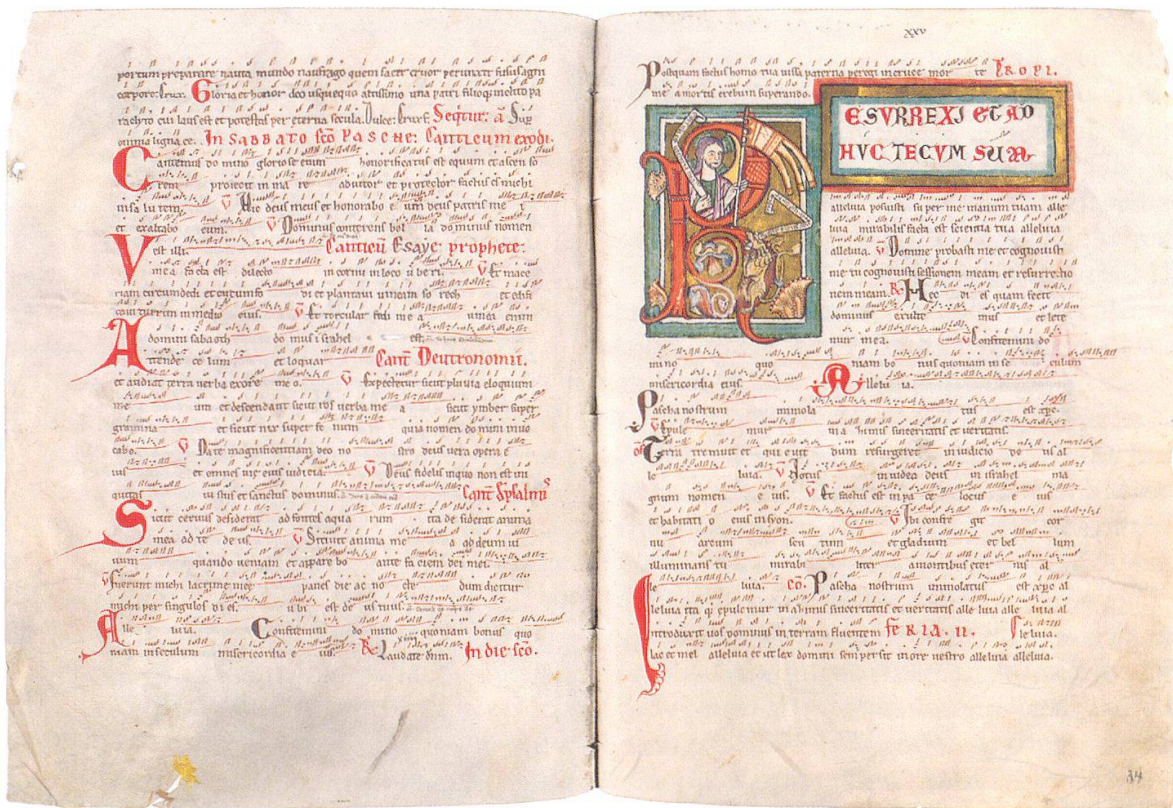 portum preparare nauta mundo naufrago quem sacer cruor perunxit fusus agni
corpore. Crux. Gloria et honor deo usquequo altissimo una patri filioque inclito pa
raclyto cui laus est et potestas per eterna secula. Dulce. Crux. Sequitur a Sup
omnia ligna ce. In SABBATO sco PASCHE: Canticum exodi.
Cantemus do mino gloriose enim honorificatus est equum et ascen so
rem proiecit in ma re adiutor et protector factus est michi
insa lu tem. V Hic deus meus et honorabo e um deus patris me i
et exaltabo eum. V Dominus conterens bel la dominus nomen
est illi. Canticum Esaye prophete:
Vinea facta est dilecto in cornu in loco uberi. V Et mace
riam circumdedit et circumfo dit et plantavit vineam so rech et edifi
cavit turrim in medio eius. V Et torcular fodit in ea vinea enim
domini sabaoth do mus israhel est.
Attende ce lum et loquar Cant Deutronomii.
et audiat terra verba ex ore meo. V Expectetur sicut pluvia eloquium
me um et descendant sicut ros verba me a sicut ymber super
gramina et sicut nix super fe num quia nomen domini invo
cabo. V Date magnificentiam deo no stro deus vera opera e
ius et omnes vie eius iudicia. V Deus fidelis in quo non est ini
quitas iustus et sanctus dominus. Cant Psalmus
Sicut cervus desiderat ad fontes aqua rum ita desiderat anima
mea ad te deus. V Sitivit anima me a ad deum vi
vum quando veniam et appare bo ante faciem dei mei.
V Fuerunt michi lacrime mee panes die ac no cte dum dicitur
michi per singulos di es. ubi est deus tuus.
Alle luia. Confitemini do mino quoniam bonus quo
niam in seculum misericordia e ius. Laudate dnm. In die sco.
xxv
Postquam factus homo tua iussa paterna peregi in cruce mor te PROPI.
me a mortis erebum superando.
ESURREXI ET AD
HVC TECVM SUM
alleluia posuisti super me manum tuam alle
luia mirabilis facta est scientia tua alleluia
alleluia. V Domine probasti me et cognovisti
me tu cognovisti sessionem meam et resurrectio
nem meam. R Hec di es quam fecit
dominus exulte mus et lete
mur in ea. V Confitemini do
mino quo niam bo nus quoniam in se culum
misericordia eius. Allelu ia.
Pascha nostrum immola tus est xpc.
V Epule mur in a zimis sinceritatis et veritatis.
Terra tremuit et qui evit dum resurgeret in iudicio de us al
le luia. V Notus in iudea deus in israhel ma
gnum nomen e ius. V Et factus est in pa ce locus e ius
et habitati o eius in syon. V Ibi confre git cor
nu arcum scu tum et gladium et bel lum
illuminans tu mirabi liter a montibus eter nis al
le luia. co. Pascha nostrum immolatus est xpc al
leluia itaque epulemur in azimis sinceritatis et veritatis alle luia alle luia al
Introduxit vos dominus in terram fluentem feRIA. II. leluia.
lac et mel alleluia et ut lex domini semper sit in ore vestro alleluia alleluia.
34